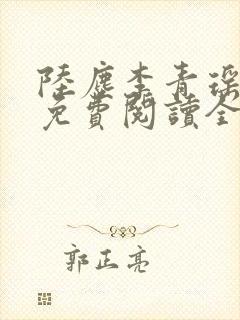 陸塵李青瑤
免費閱讀全
郭正亮